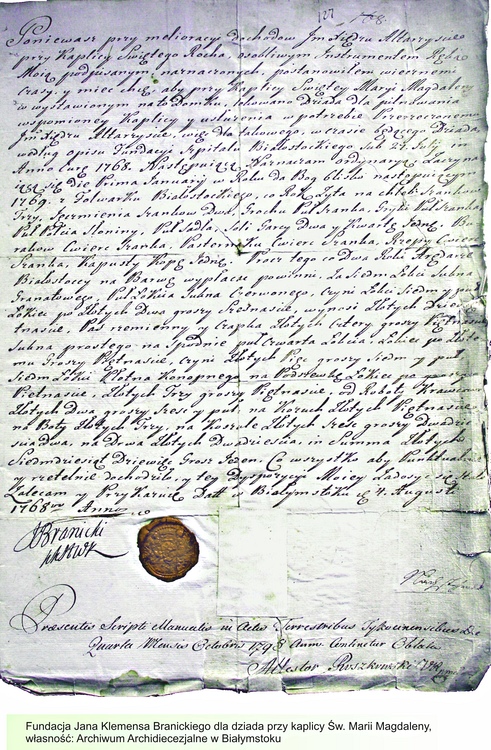 Poniewasz przy melioracyi dochodow Jm Xiędzu Altarzyscie
przy Kaplicy Swiętego Rocha, osobliwym Instrumentem Ręką
Moią podpisanym, naznaczonych, postanowilem wiecznemi
czasy, y miec chcę, aby przy Kaplicy Swiętey Maryi Magdaleny
w wystawionym na to Domku, lokowano Dziada dla pilnowania
wspomnioney Kaplicy y usluzenia w potrzebie
Jm Xiędzu Altarzyscie, więc dla takowego, w czasie będącego Dziada
według opisu Fundacyi Szpitala Białostockiego sub 25. July in
Anno Curr. 1768. Następuiącą, Wyznaczam ordynaryą, Zaczyna
iącą się die Prima January w Roku da Bog blisko nastąpuiącym
1769. z Folwarku Białostockiego, na Rok, Zyta na chleb Szankow
Trzy, Jęczmienia Szankow Dwa, Grochu Puł Szanka, Gryki Puł Szanka
Puł Połcia Słoniny, Puł Sadła, Soli Garcy Dwa y Kwartę Jedną, Bu
rakow Cwierc Szanka, Pasternaku Cwierc Szanka, Rzepy Cwierc
Szanka, Kapusty Kopę Jedną. Procz tego co Dwa Roki
Białostoccy na Barwę wypłacac powinni, Za Siedm Łokci Sukna
Granatowego, Puł Łokcia Sukna Czerwonego, czyni Łokci Siedm y puł
Łokiec po Złotych Dwa groszy Szesnascie, wynosi Złotych Dziewię
tnascie, Pas rzemienny y Czapka Złotych Cztery groszy Piętnascie
Sukna prostego na Spodnie puł czwarta Łokcia Łokiec po Złote
mu Groszy Piętnascie, czyni Złotych Pięc groszy siedm y puł
Siedm Łokci Płotna Konopnego na Podszewkę Łokiec po groszy
Piętnascie, Złotych Trzy groszy Piętnascie, od Roboty Krawcowi
Złotych Dwa groszy Szesc y puł, na Kozuch Złotych Piętnascie
na Boty Złotych Trzy, na Koszule Złotych Szesc groszy Dwadzie
scia dwa, na Drwa Złotych Dwadziescia, in Summa Złotych
Siedmdziesiąt Dziewięc Grosz Jeden. Co wszystko aby Punktualnie
y rzetelnie dochodziło y tey Dyspozycyi Moiey Zadosyc się stało
Zalecam y Przykazuię Datt w Białymstoku d. 4. Augusti
1768vo Anno
JKBranicki
HWK
Praesentis Scripti Manualis in Actis Terrestribus Tykocinensibus Die
Quarta Mensis Octobris 1798 Anno Continetur Oblata
Attestor Ruszkowski
Fundacja Jana Klemensa Branickiego dla dziada przy kaplicy Św. Marii Magdaleny,
własność: Archiwum Archidiecezjalne w Białymstoku